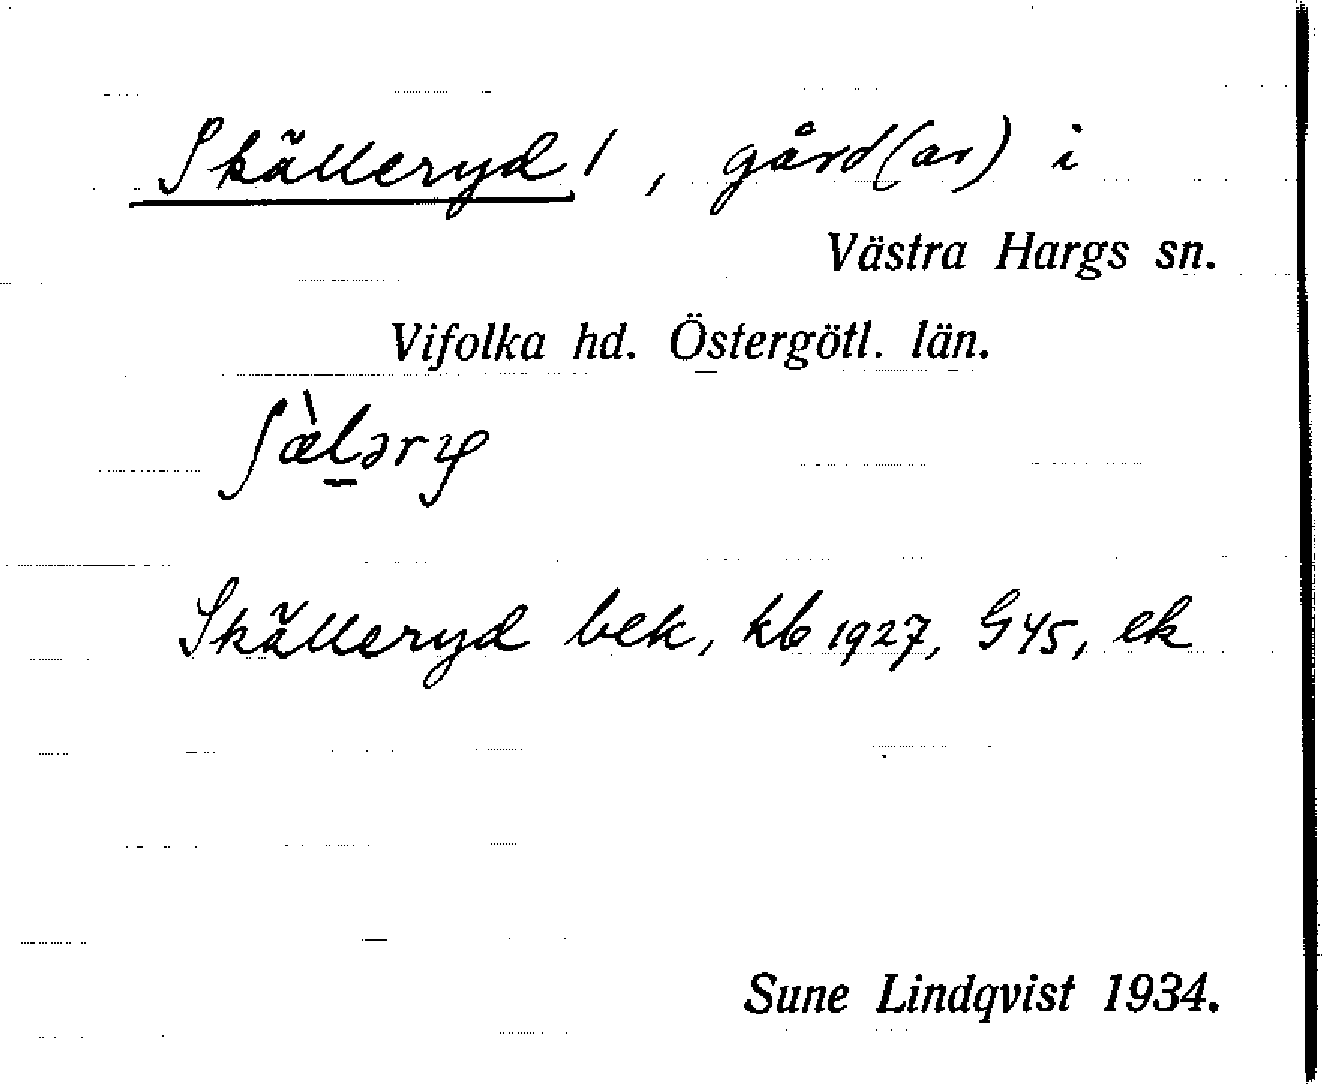 Skälleryd/, gård(ar) i
Västra Hargs sn.
Vifolka hd. Östergötl. län.
ʃæ̀l̠əry
Skälleryd bek, kb 1927, G45, ek
Sune Lindqvist 1934.